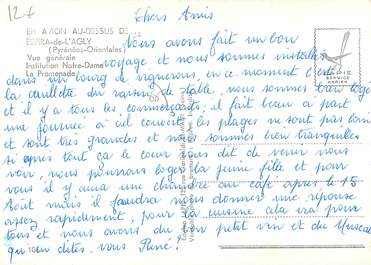 12 F
Chers Amis
EN AVION AU-DESSUS DE...
ESPIRA-de-L'AGLY
(Pyrénées-Orientales)
Vue générale
Institution Notre-Dame
La Promenade
Nous avons fait un bon
voyage et nous sommes installés
dans un bourg de vignerons, en ce moment c'est
la cueillette du raisin de table, nous sommes bien logés
et il y a tous les commerçants; il fait beau à part
une journée à ciel couvert, les plages ne sont pas loin
et sont très grandes et nous sommes bien tranquilles
si après tout ça le coeur vous dit de venir nous
voir, nous pouvons loger la jeune fille et pour
vous il y aura une chambre au café après le 15
Août mais il faudra nous donner une réponse
assez rapidement, pour la cuisine cela ira pour
tous et nous avons du bon petit vin et du Muscat
qu'en dites-vous
LAPIE
SERVICE
AÉRIEN